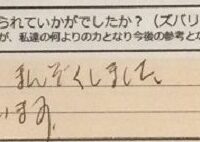 られていかがでしたか？（ズバリ
が、私達の何よりの力となり今後の参考とな
まんぞくしました。
います。